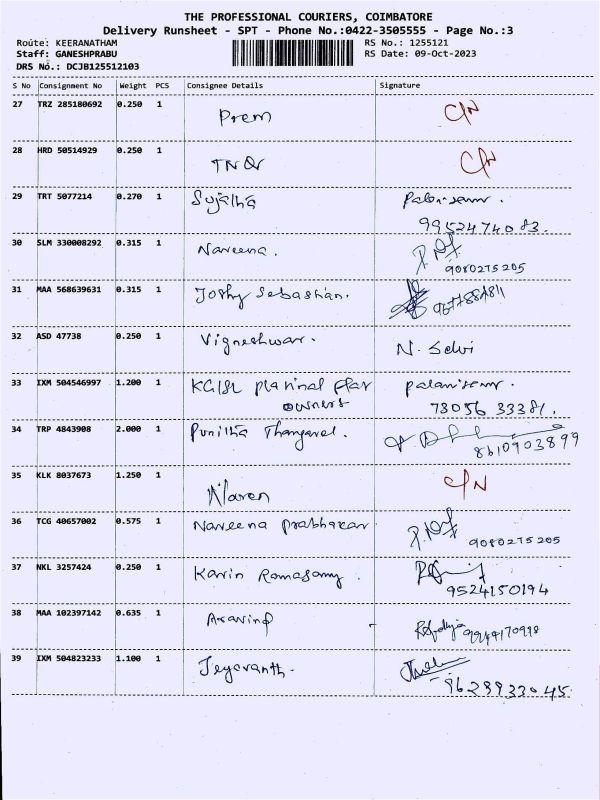 THE PROFESSIONAL COURIERS, COIMBATORE
Delivery Runsheet - SPT - Phone No.:0422-3505555 - Page No.:3
Route: KEERANATHAM RS No.: 1255121
Staff: GANESHPRABU RS Date: 09-Oct-2023
DRS No.: DCJB125512103
S No Consignment No Weight PCS Consignee Details Signature
27 TRZ 285180692 0.250 1 Prem C/N
28 HRD 50514929 0.250 1 TNQ C/N
29 TRT 5077214 0.270 1 Sujatha
9952474083.
30 SLM 330008292 0.315 1 Naveena.
9080275205
31 MAA 568639631 0.315 1 Joshy Sebastian.
32 ASD 47738 0.250 1 Vigneshwar. N. Selvi
33 IXM 504546997 1.200 1 KGISL
owners 73056 33381.
34 TRP 4843908 2.000 1 Punitha Thangavel.
8610903899
35 KLK 8037673 1.250 1 Naren C/N
36 TCG 40657002 0.575 1 Naveena Prabhakar
9080275205
37 NKL 3257424 0.250 1 Kavin Ramasamy.
9524150194
38 MAA 102397142 0.635 1 Aravind
39 IXM 504823233 1.100 1 Jeyavanth.
9628933045